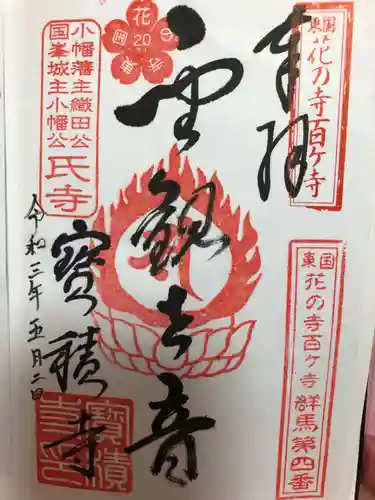 奉拝
東国
花の寺百ヶ寺
東国
花の寺百ヶ寺 群馬第四番
聖観世音
花
20
小幡藩主織田公
国峯城主小幡公
氏寺
寳積寺
令和三年五月二日